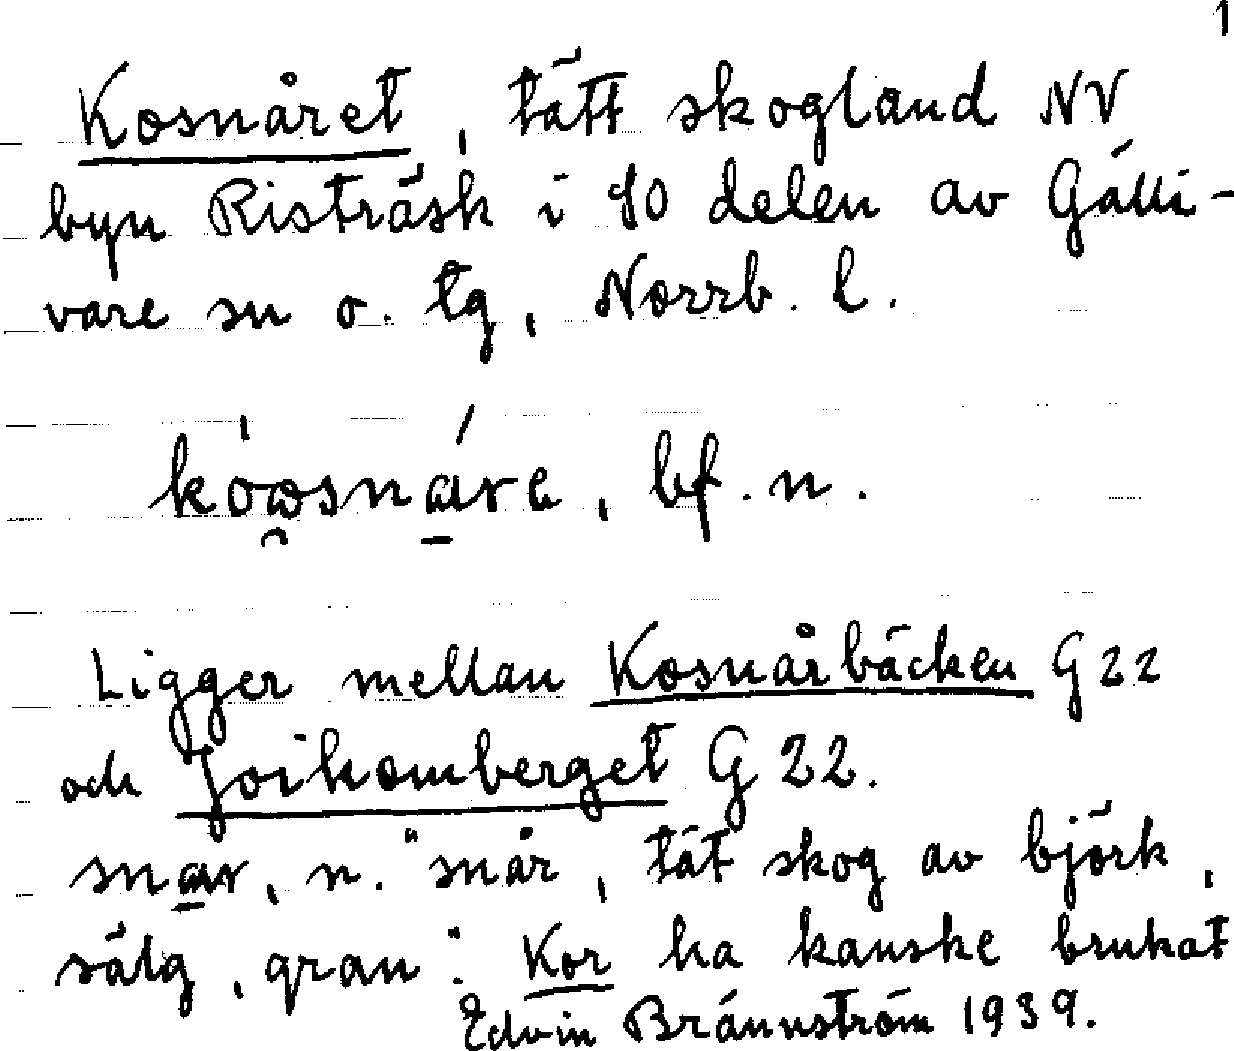 1
Kosnåret, tätt skogland NV
byn Risträsk i SO delen av Gälli-
vare sn o. tg, Norrb. l.
bf. n.
Ligger mellan Kosnårbäcken G 22
och Joikomberget G 22.
n. "snår, tät skog av björk,
sälg, gran". Kor ha kanske brukat
Edvin Brännström 1939.